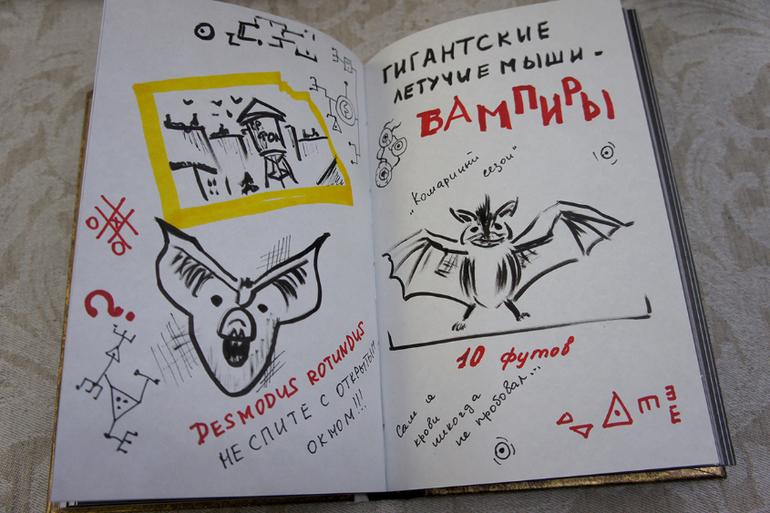 DESMODUS ROTUNDUS
НЕ СПИТЕ С ОТКРЫТЫМ
ОКНОМ!!!
ГИГАНТСКИЕ
ЛЕТУЧИЕ МЫШИ -
ВАМПИРЫ
"Комариный
сезон"
10 футов
Сам я
крови
никогда
не пробовал...